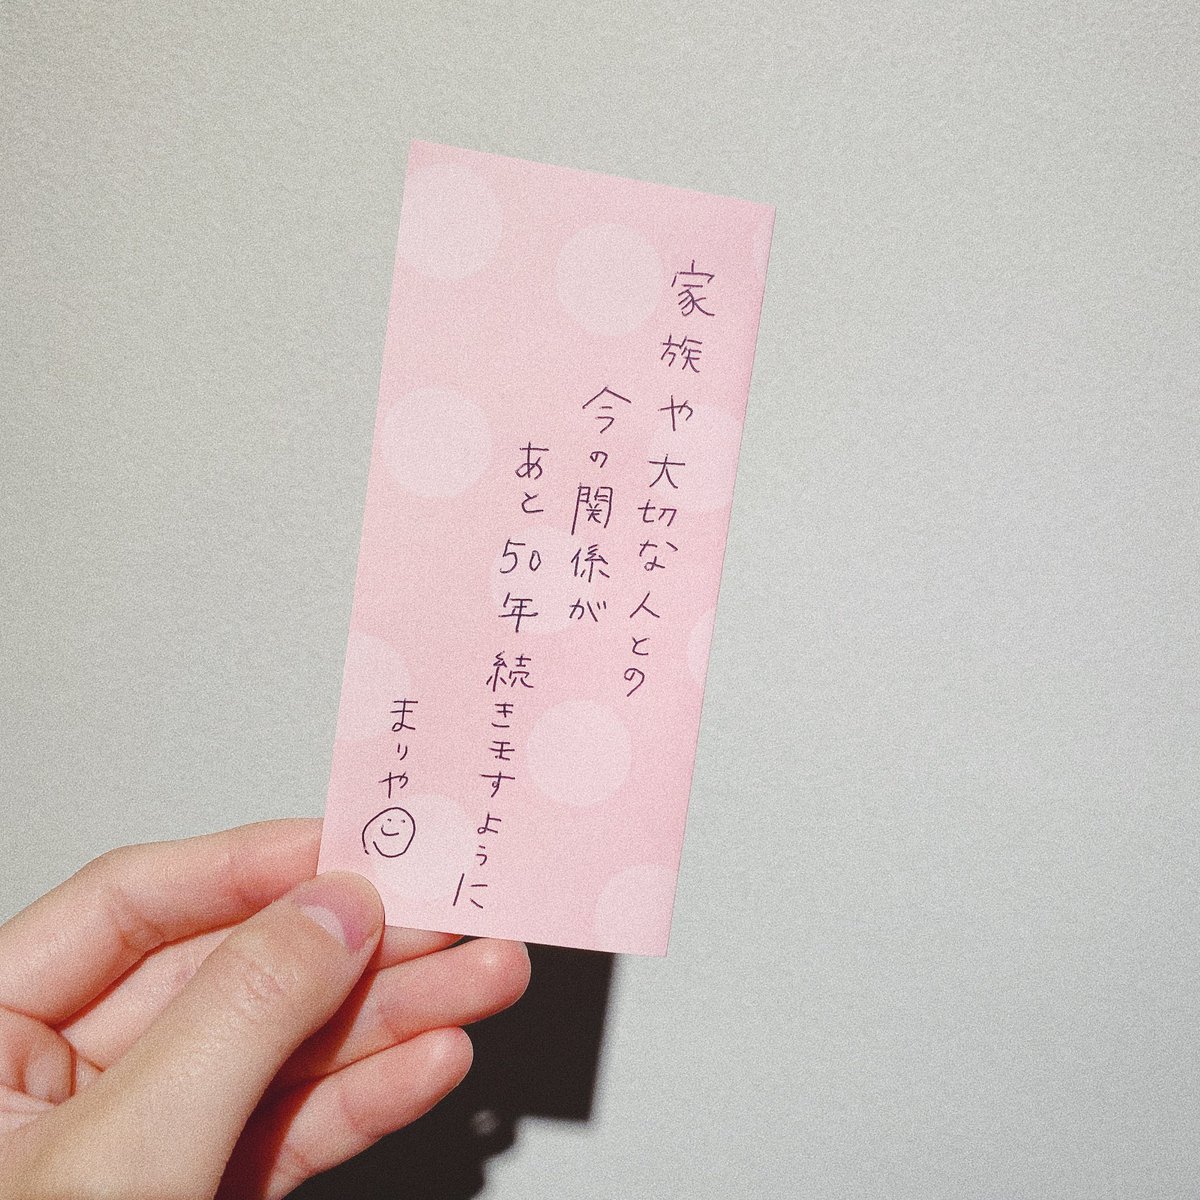 家族や大切な人との
今の関係が
あと50年続きますように
まりや